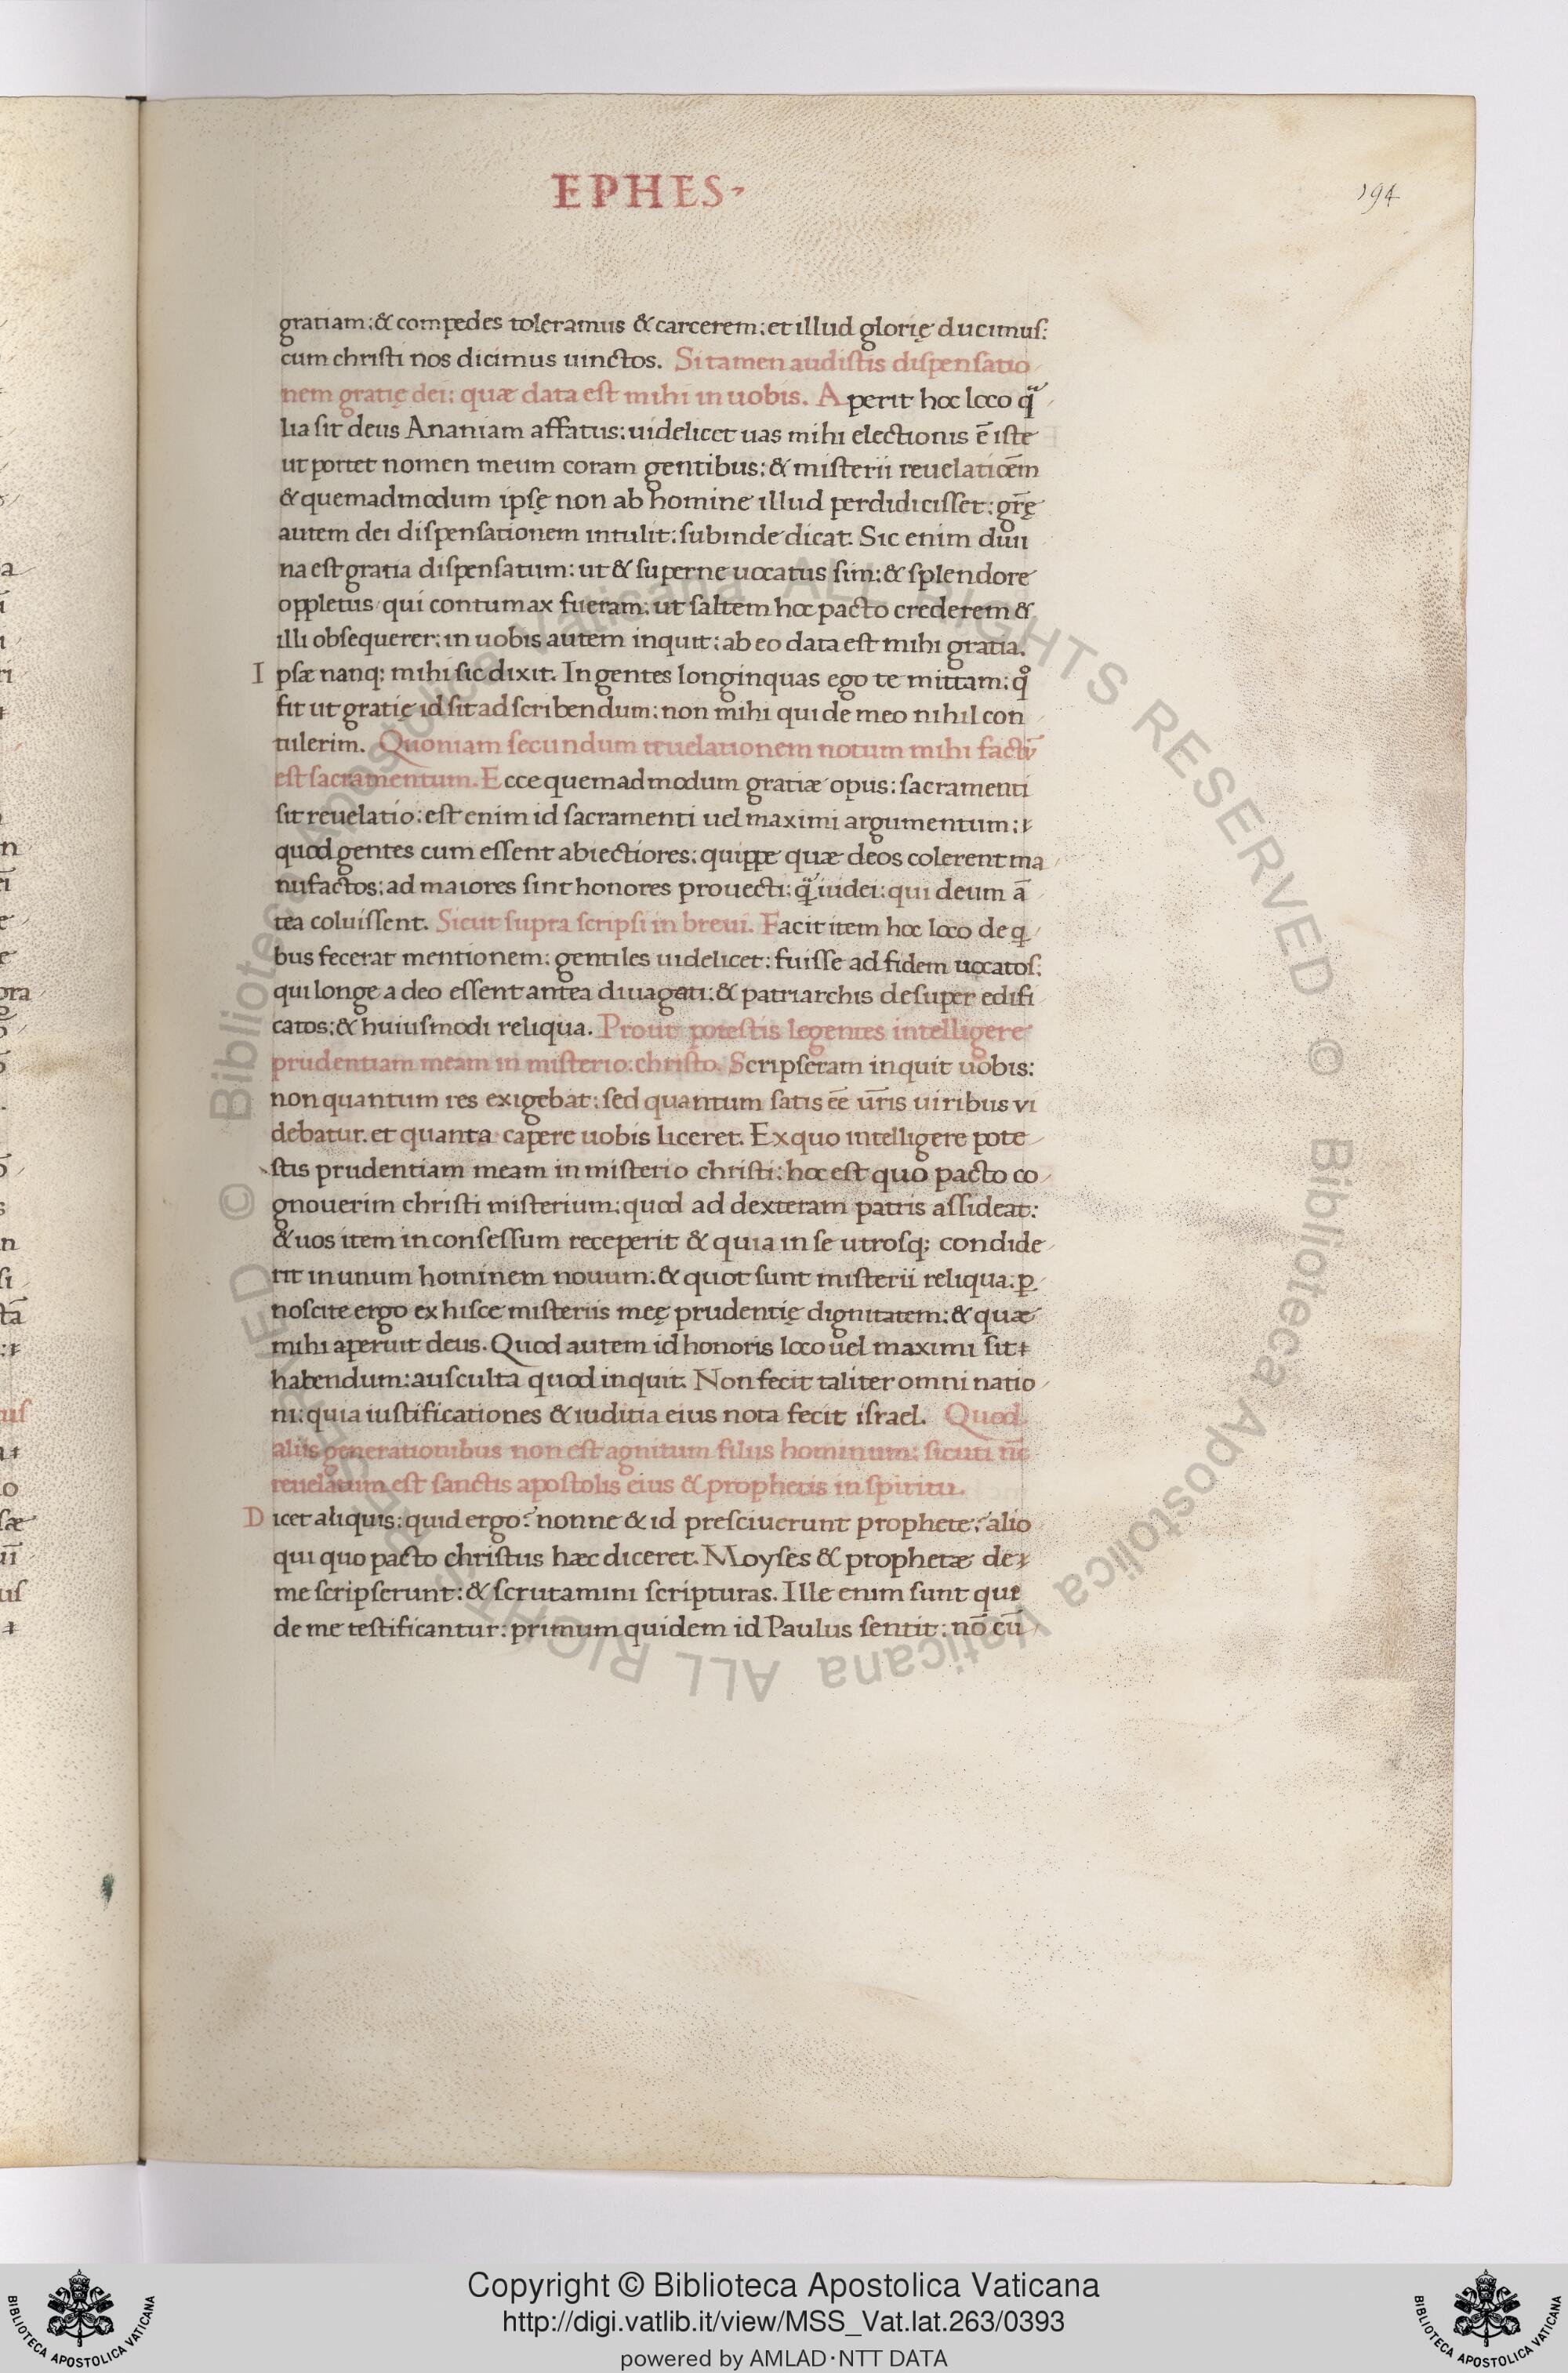 EPHES
194
gratiam: & compedes toleramus & carcerem: et illud glorię ducimus:
cum christi nos dicimus uinctos. Si tamen audistis dispensatio
nem gratię dei: quæ data est mihi in uobis. Aperit hoc loco q̃
lia sit deus Ananiam affatus: uidelicet uas mihi electionis ē iste
ut portet nomen meum coram gentibus: & misterii reuelatiōēm
& quemadmodum ipsę non ab homine illud perdidicisset: gr̄ę
autem dei dispensationem intulit: subinde dicat. Sic enim diui
na est gratia dispensatum: ut & superne uocatus sim: & splendore
oppletus qui contumax fueram: ut saltem hoc pacto crederem &
illi obsequerer: in uobis autem inquit: ab eo data est mihi gratia.
Ipsæ nanq; mihi sic dixit. In gentes longinquas ego te mittam: qͦ
fit ut gratię id sit adscribendum: non mihi qui de meo nihil con
tulerim. Quoniam secundum reuelationem notum mihi factū
est sacramentum. Ecce quemadmodum gratiæ opus: sacramenti
sit reuelatio: est enim id sacramenti uel maximi argumentum:
quod gentes cum essent abiectiores: quippe quæ deos colerent ma
nufactos: ad maiores sint honores prouecti: q̃ iudei: qui deum ā
tea coluissent. Sicut supra scripsi in breui. Facit item hoc loco de q
bus fecerat mentionem: gentiles uidelicet: fuisse ad fidem uocatos:
qui longe a deo essent antea diuagati: & patriarchis desuper edifi
catos: & huiusmodi reliqua. Prout potestis legentes intelligere
prudentiam meam in misterio: christo. Scripseram inquit uobis:
non quantum res exigebat: sed quantum satis ēē ūris uiribus vi
debatur. et quanta capere uobis liceret. Ex quo intelligere pote
stis prudentiam meam in misterio christi: hoc est quo pacto co
gnouerim christi misterium: quod ad dexteram patris assideat:
& uos item in consessum receperit & quia in se utrosq; condide
rit in unum hominem nouum: & quot sunt misterii reliqua. ꝑ
noscite ergo ex hisce misteriis meę prudentię dignitatem: & quæ
mihi aperuit deus. Quod autem id honoris loco uel maximi sit
habendum: ausculta quod inquit. Non fecit taliter omni natio
ni: quia iustificationes & iuditia eius nota fecit israel. Quod
aliis generationibus non est agnitum filiis hominum: sicuti nc̄
reuelatum est sanctis apostolis eius & prophetis in spiritu.
Dicet aliquis: quid ergo? nonne & id presciuerunt prophete? alio
qui quo pacto christus hæc diceret. Moyses & prophetæ de
me scripserunt: & scrutamini scripturas. Ille enim sunt que
de me testificantur: primum quidem id Paulus sentit: nō cū
Copyright © Biblioteca Apostolica Vaticana
http://digi.vatlib.it/view/MSS_Vat.lat.263/0393
powered by AMLAD·NTT DATA
BIBLIOTECA APOSTOLICA VATICANA
BIBLIOTECA APOSTOLICA VATICANA